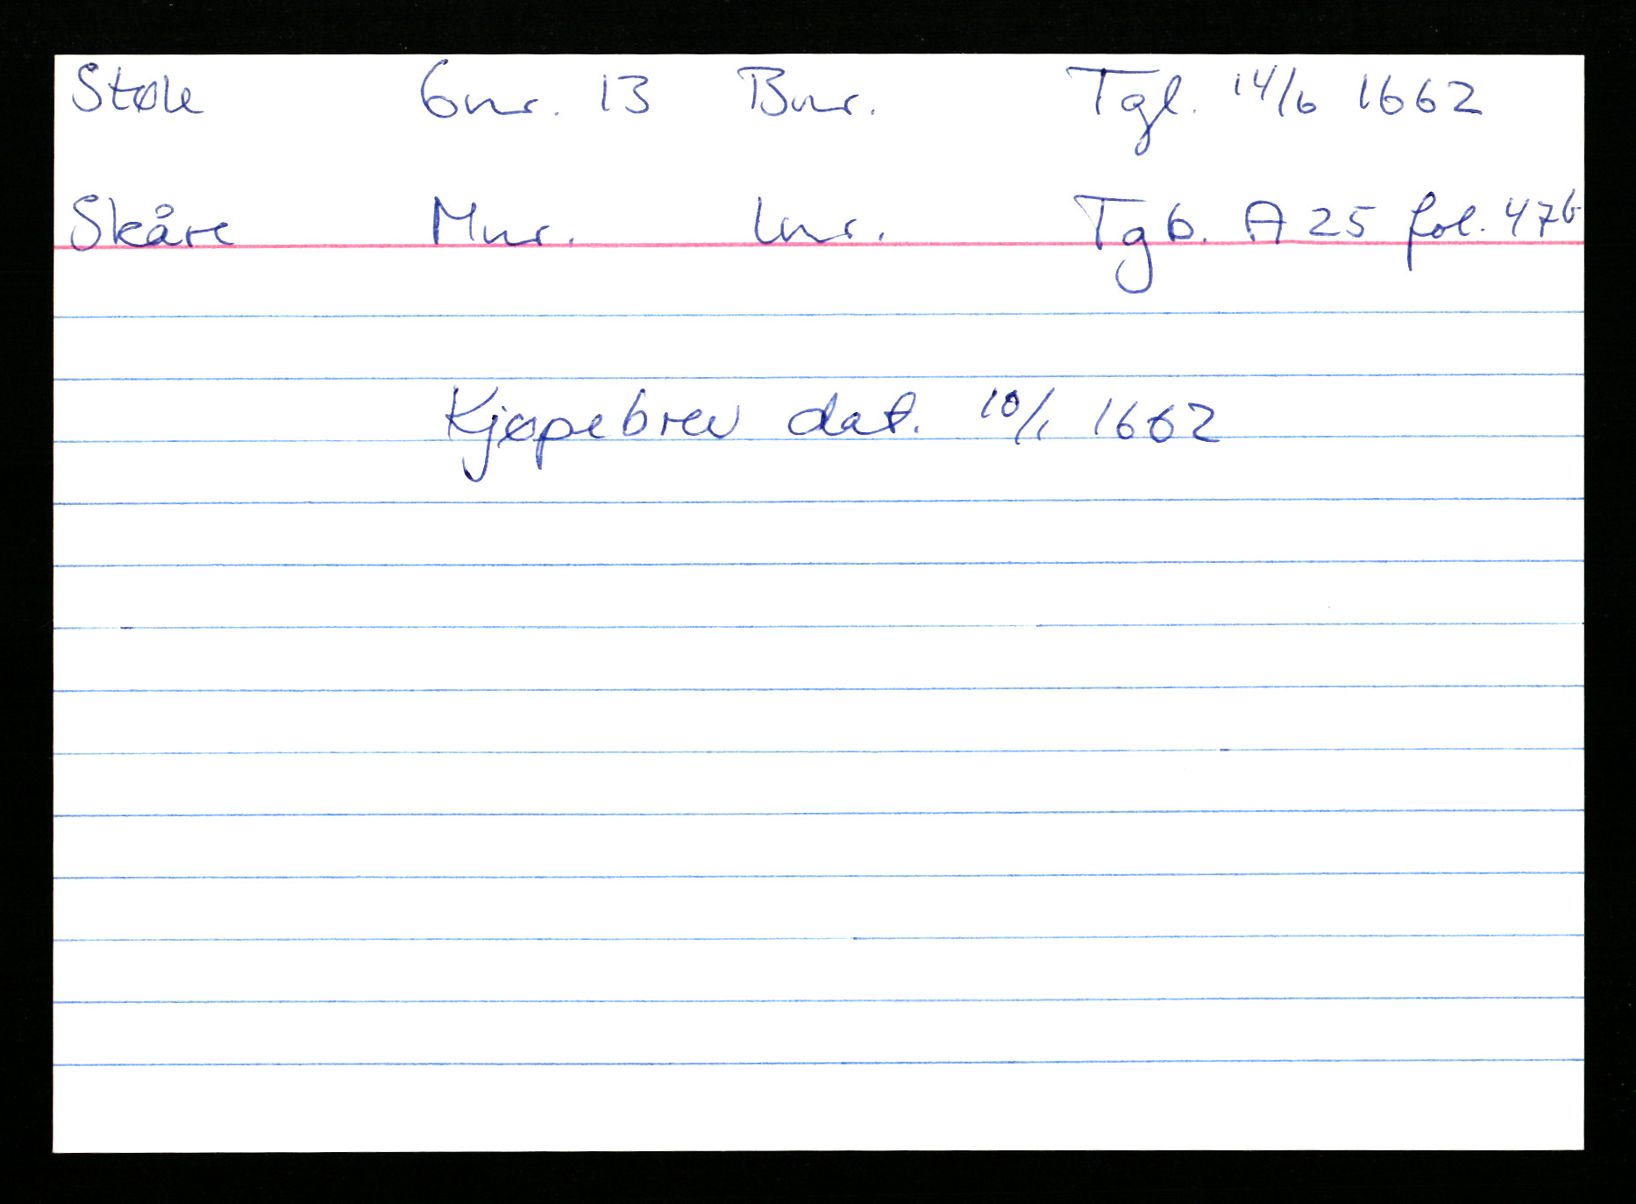 Støle Gnr. 13 Bnr. Tgl. 14/6 1662
Skåre Mnr. Lnr. Tgb. A 25 fol. 47b
Kjøpebrev dat. 10/1 1662